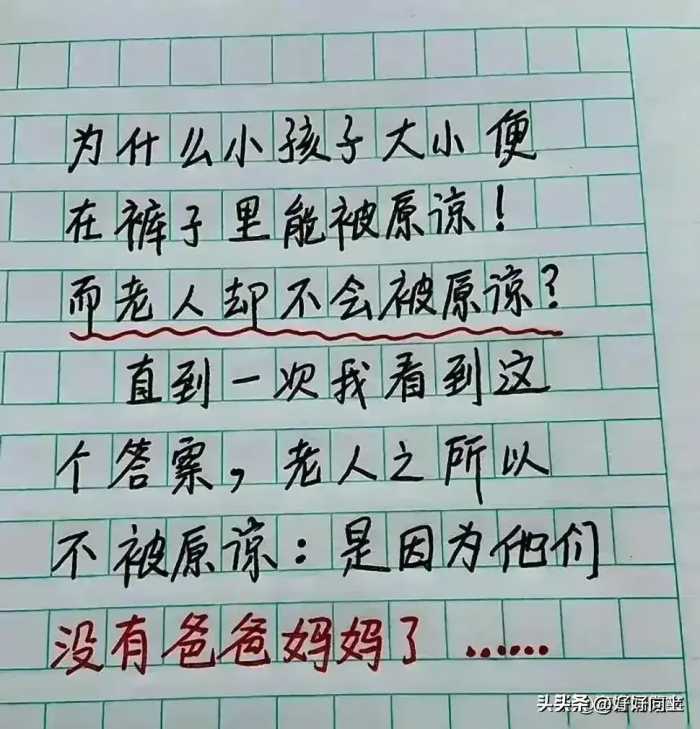 为什么小孩子大小便
在裤子里能被原谅！
而老人却不会被原谅？
直到一次我看到这
个答案，老人之所以
不被原谅：是因为他们
没有爸爸妈妈了……
头头条@好好向上